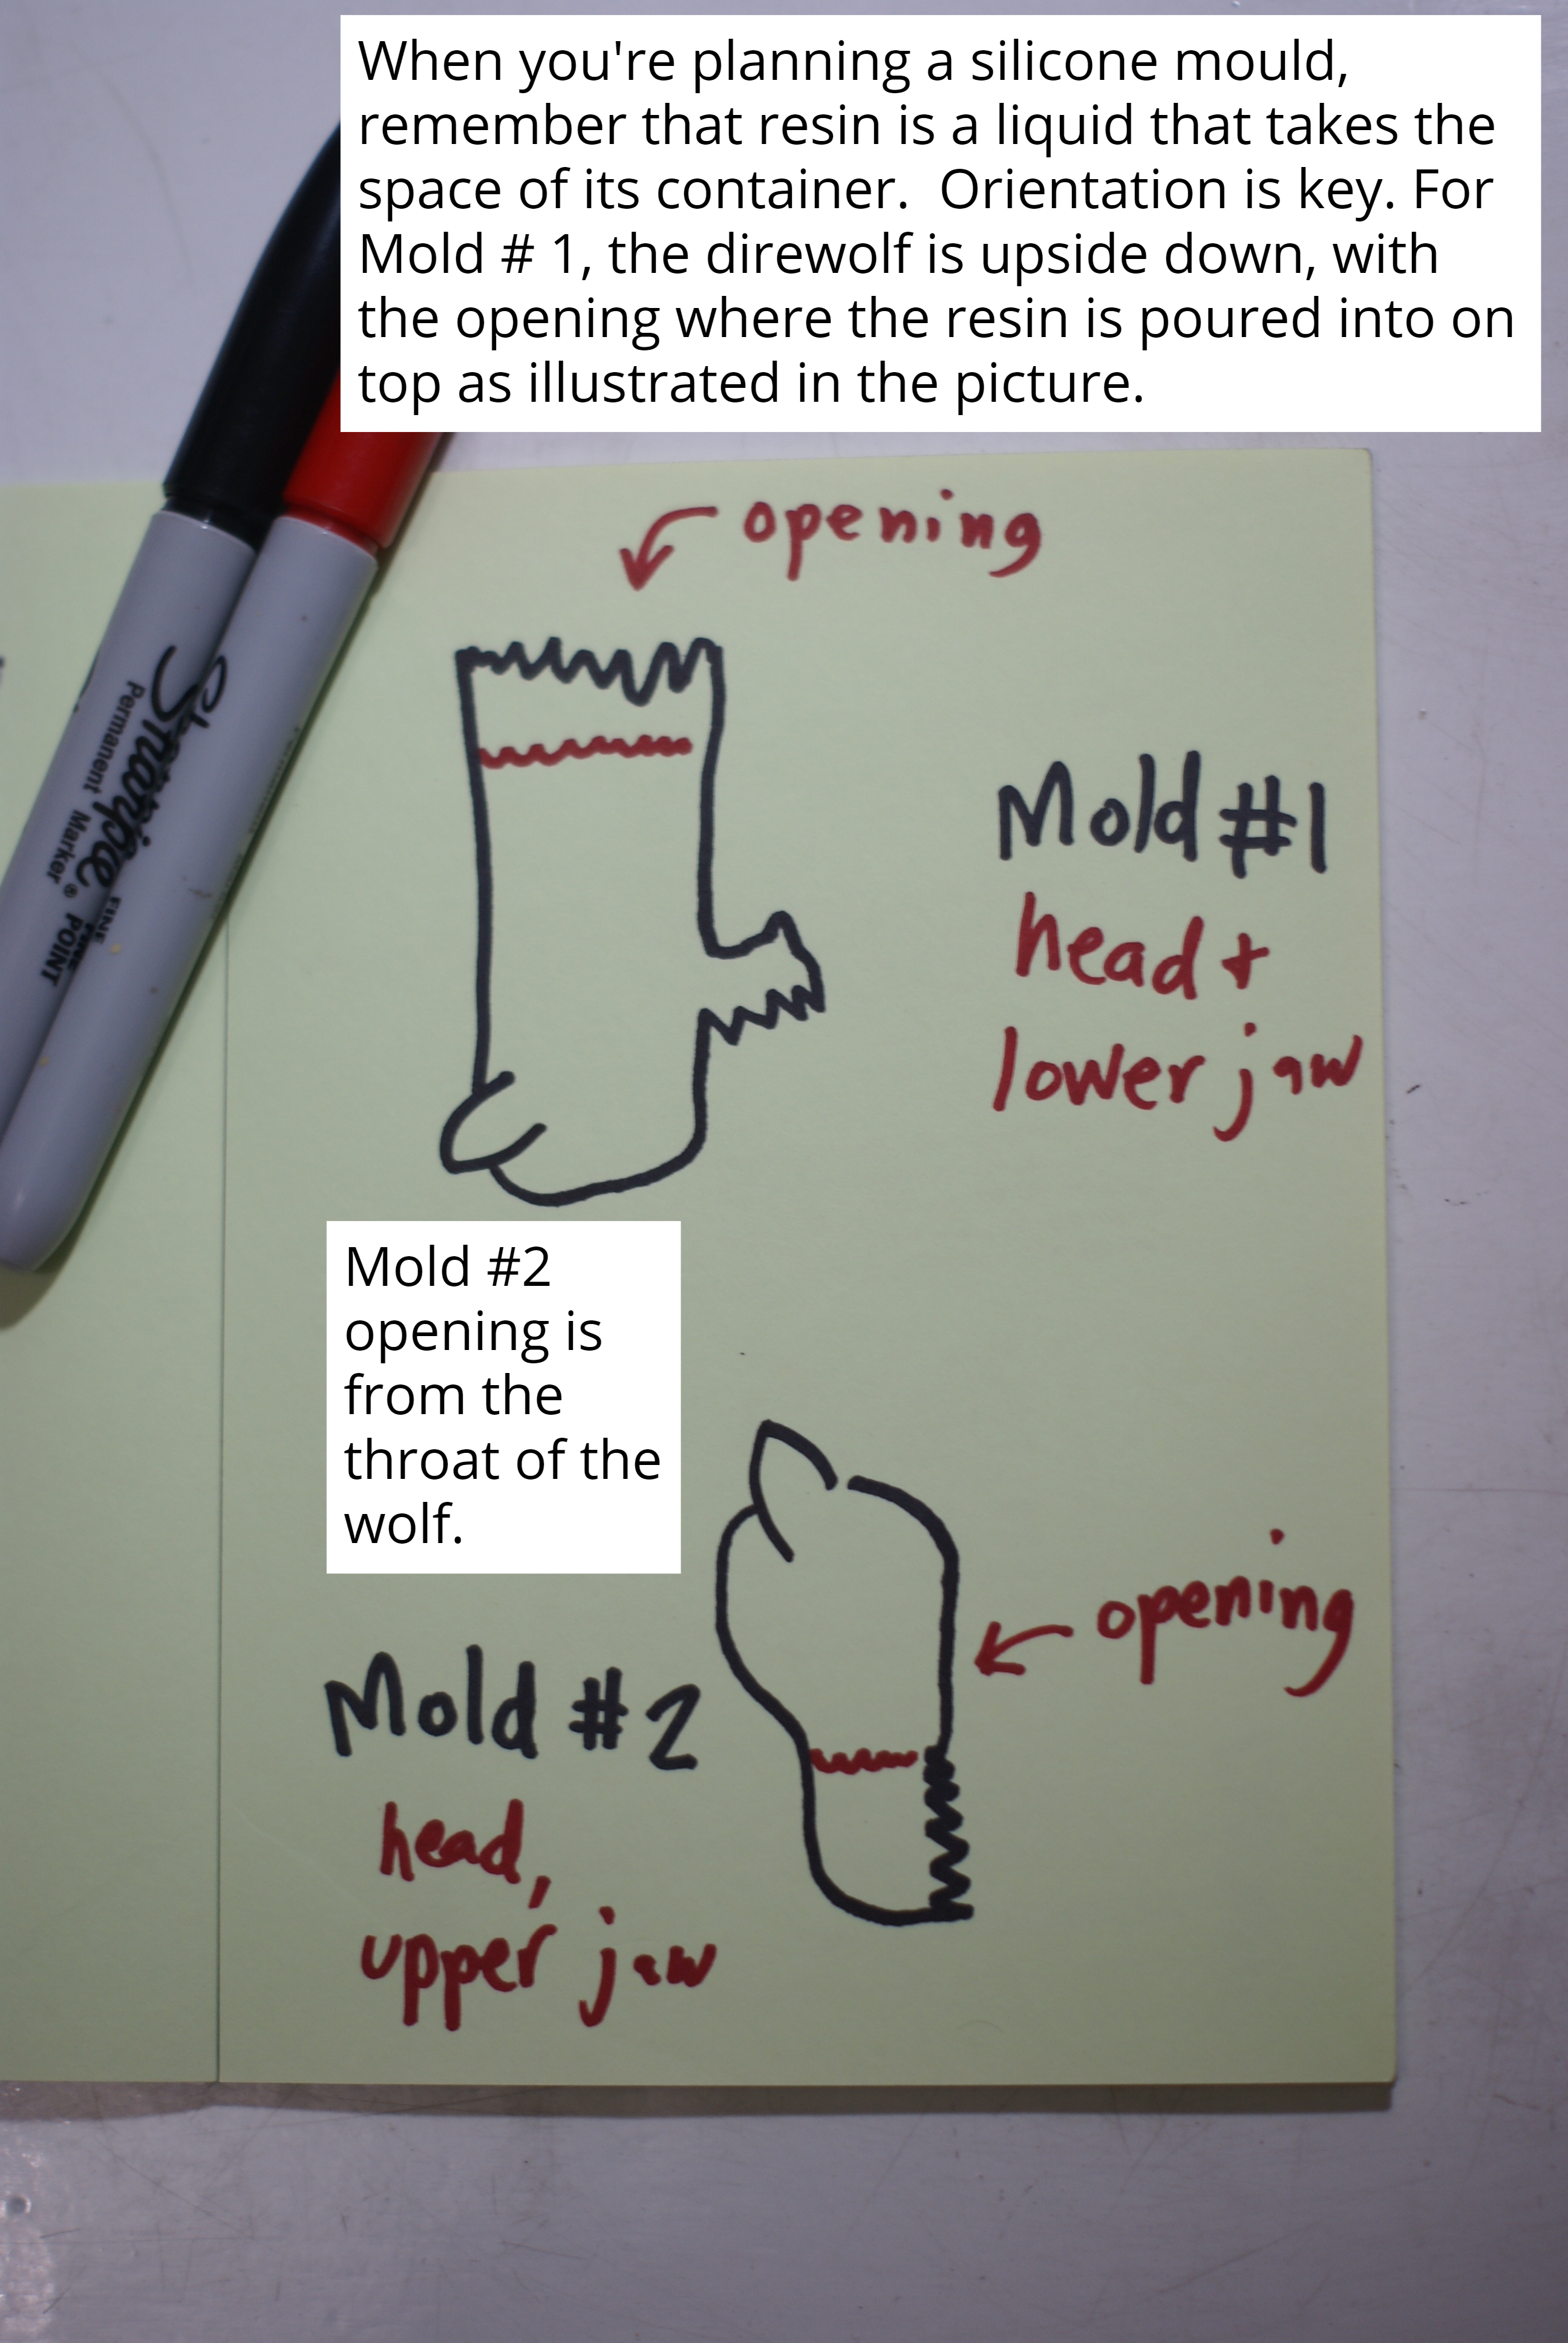 When you're planning a silicone mould,
remember that resin is a liquid that takes the
space of its container.  Orientation is key. For
Mold # 1, the direwolf is upside down, with
the opening where the resin is poured into on
top as illustrated in the picture.
opening
Sharpie
FINE POINT
Permanent Marker
Mold #1
head +
lower jaw
Mold #2
opening is
from the
throat of the
wolf.
opening
Mold #2
head,
upper jaw